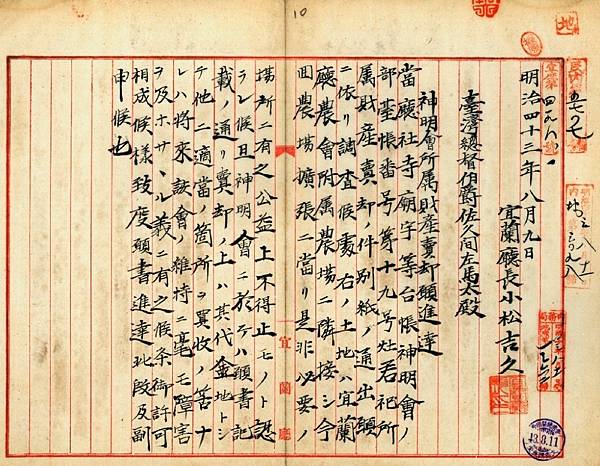 10
地
明治四十三年八月九日
宜蘭廳長小松吉久
臺灣總督伯爵佐久間左馬太殿
神明會所属財産賣却願進達
當廳社寺廟宇等台帳神明會ノ
部臺帳番号第十九号灶君祀所
属財産賣却ノ件別紙ノ通出願
ニ依リ調査候處右ノ土地ハ宜蘭
廳農會附属農場ニ隣接シ今
回農場擴張ニ當リ是非必要ノ
場所ニ有之公益上不得止モノト認
ラレ候且神明會ニ於テハ願書記
載ノ通リ賣却ノ上ハ其代金地トシ
テ他ニ適當ノ箇所ヲ買收ノ筈ナ
レハ將來該會ノ維持ニ毫モ障害
ヲ及ホサヽル義ニ有之候条御許可
相成候様致度願書進達此段及副
申候也
宜蘭廳
43.8.11